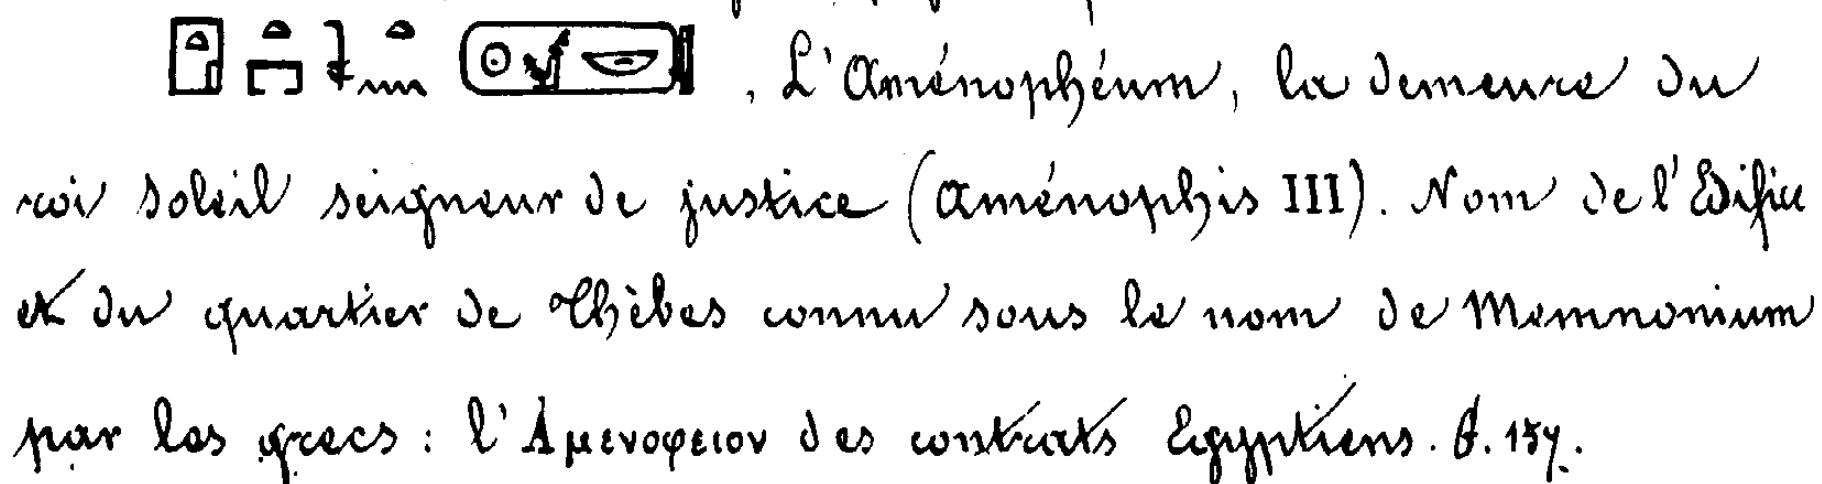 , L'Aménophéum, la demeure du
roi soleil seigneur de justice (Aménophis III). Nom de l'Edifice
et du quartier de Thèbes connu sous le nom de Memnonium
par les grecs : l'Αμενοφειον des contrats Egyptiens. 157.